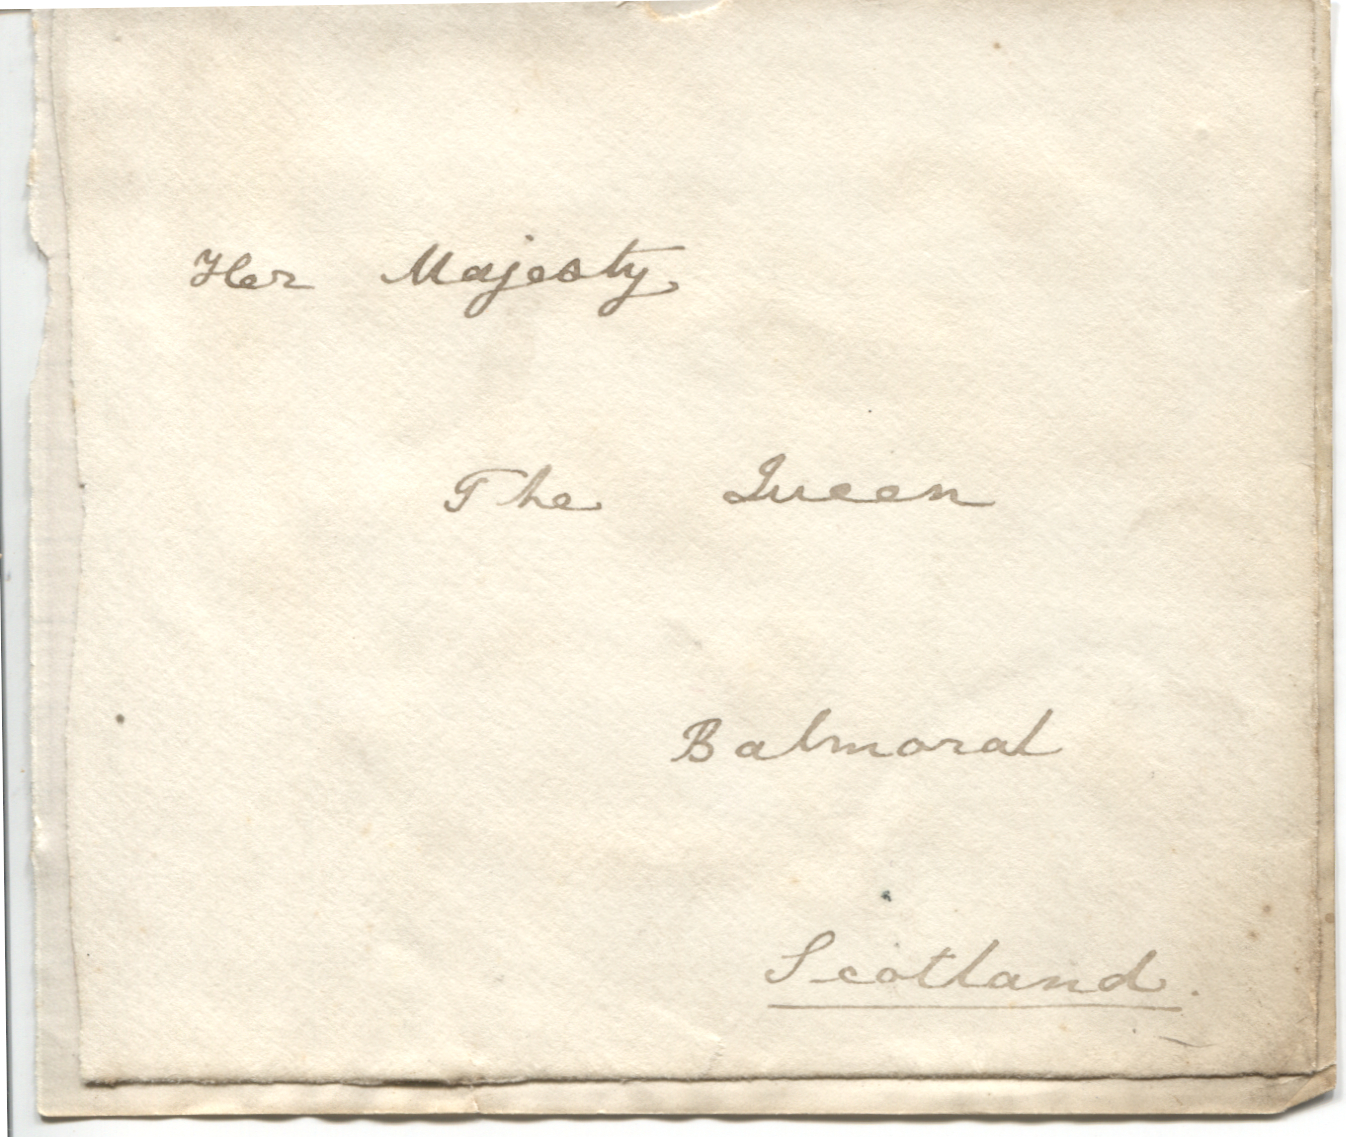 Her Majesty
The Queen
Balmoral
Scotland.